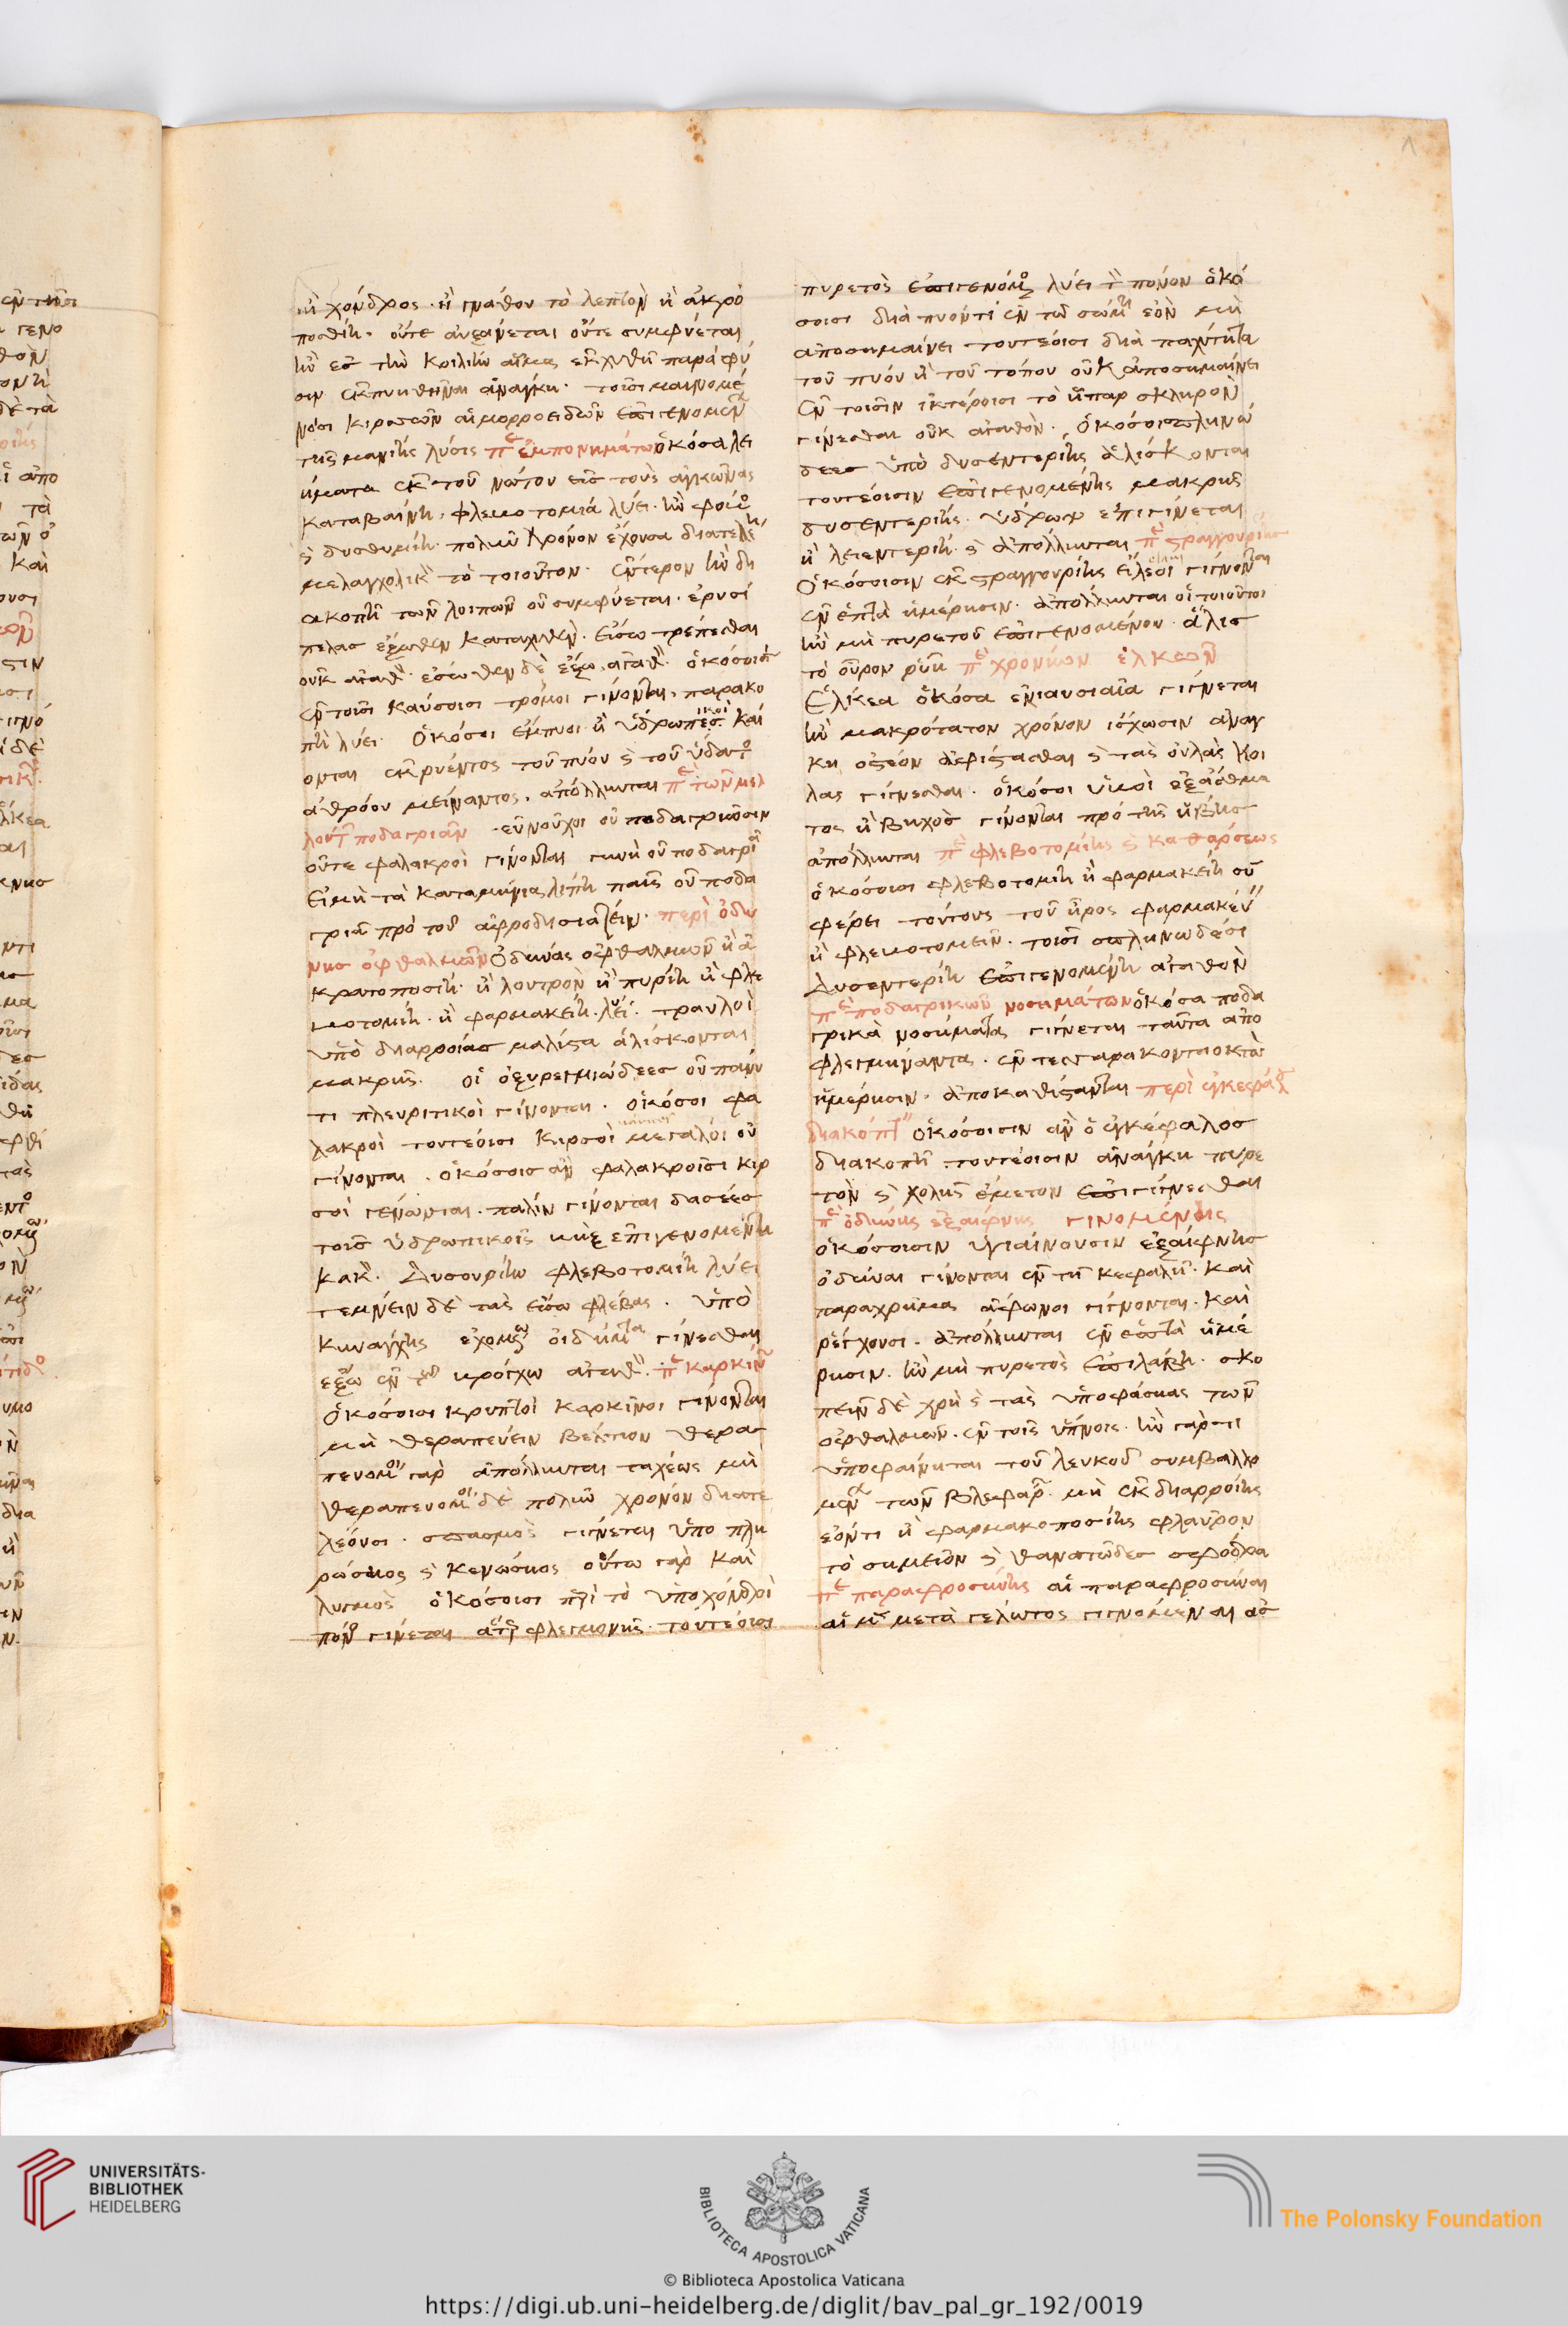 ἢ χόνδρος · ἢ γνάθου τὸ λεπτὸν ἢ ἀκρο
ποσθίη · οὔτε αὐξάνεται οὔτε συμφύεται
ἢν ἐς τὴν κοιλίην αἷμα ἐκχυθῆ παρὰ φύ
σιν ἐκπυηθῆναι ἀνάγκη · τοῖσι μαινομέ
νοισι κιρσῶν αἱμορροειδῶν ἐπιγενομεν
τῆς μανίης λύσις π ὁκόσα λει
ήματα ἐκ τοῦ νώτου εἰς τοὺς ἀγκῶνας
καταβαίνη · φλεβοτομιά λύει · ἢν φοβ
ς δυσθυμίη πολὺν χρόνον ἔχουσα διατελε
μελαγχολικ τὸ τοιοῦτον · ἐντέρον ἢν δι
ακοπῆ τῶν λοιπῶν οὐ συμφύεται · ἐρυσί
πελας ἔξωθεν καταχυθὲν · εἴσω τρέπεσθαι
οὐκ ἀγαθ · ἔσωθεν δὲ ἔξω ἀγαθ · ὁκόσοισι
ἐν τοῖσι καύσοισι τρόμοι γίνονται · παρακο
πὴ λύει · Ὁκόσοι ἔμπυοι ἢ ὑδρωπικοὶ καί
ονται ἐκρυέντος τοῦ πύου ς τοῦ ὕδατο
ἀθρόου · ἀπόλλυνται π τῶν μελ
λοντ ποδαγριᾶν · εὐνοῦχοι οὐ ποδαγριῶσιν
οὔτε φαλακροὶ γίνονται γυνὴ οὐ ποδαγριᾶ
εἰ μὴ τὰ καταμήνια λίπη παῖς οὐ ποδα
γριᾶ πρὸ τοῦ ἀφροδισιάζειν · περὶ ὀδυ
νης ὀφθαλμῶν Ὀδύνας ὀφθαλμῶν ἢ ἀ
κρατοποσίη · ἢ λουτρὸν ἢ πυρίη ἢ φλε
βοτομίη · ἢ φαρμακείη · λύει · τραυλοὶ
ὑπὸ διαρροίας μάλιστα ἁλίσκονται
μακρῆς · οἱ ὀξυρεγμιώδεες οὐ πάνυ
τι πλευριτικοὶ γίνονται · ὁκόσοι φα
λακροὶ τουτέοισι κιρσοὶ μεγάλοι οὐ
γίνονται · ὁκόσοις ἂν φαλακροῖσι κιρ
σοὶ γένωνται · πάλιν γίνονται δασέες
τοῖς ὑδρωπικοῖς βὴξ ἐπιγενομένη
κακ · Δυσουρίην φλεβοτομίη λύει
τέμνειν δὲ τὰς εἴσω φλέβας · ὑπὸ
κυνάγχης ἐχομ οἴδημα γίνεσθαι
ἔξω ἐν τῶ βρόγχω ἀγαθ · π καρκίν
Ὁκόσοισι κρυπτοὶ καρκῖνοι γίνονται
μὴ θεραπεύειν βέλτιον θερα
πευομ γὰρ ἀπόλλυνται ταχέως μὴ
θεραπευομ δὲ πολὺν χρόνον διατε
λέουσι · σπασμὸς γίγνεται ὑπὸ πλη
ρώσιος ς κενώσιος οὕτω γὰρ καὶ
λυγμὸς ὁκόσοισι περὶ τὸ ὑποχόνδρι
πόνο γίνεται ἄτερ φλεγμονῆς · τουτέοισι
πυρετὸς ἐπιγενόμ λύει τ πόνον ὁκό
σοισι διὰ πυόν τι ἐν τῶ σώμ ἐὸν μὴ
ἀποσημαίνει τουτέοισι διὰ παχύτητα
τοῦ πυόυ ἢ τοῦ τόπου οὐκ ἀποσημαίνει
Ἐν τοῖσιν ἰκτέροισι τὸ ἧπαρ σκληρὸν
γίνεσθαι οὐκ ἀγαθὸν · Ὁκόσοι σπληνώ
δεες ὑπὸ δυσεντερίης ἁλίσκονται
τουτέοισιν ἐπιγενομένης μακρῆς
δυσεντερίης · ὕδρωψ ἐπιγίνεται
ἢ λειεντερίη ς ἀπόλλυνται π στραγγουρίης
Ὁκόσοισιν ἐκ στραγγουρίης εἴλεοι γίγνονται
ἐν ἑπτὰ ἡμέρησιν · ἀπόλλυνται οἱ τοιοῦτοι
ἢν μὴ πυρετοῦ ἐπιγενομένου · ἅλις
τὸ οὖρον ῥυῆ π χρονίων ἑλκῶν
Ἕλκεα ὁκόσα ἐνιαυσιαῖα γίγνεται
ἢν μακρότατον χρόνον ἰσχωσιν ἀναγ
κη ὀστέον ἀφίστασθαι ς τὰς οὐλὰς κοι
λας γίγνεσθαι · ὁκόσοι ὑβοὶ ἐξ ἄσθμα
τος ἢ βηχὸς γίνονται πρὸ τῆς ἥβης
ἀπόλλυνται π φλεβοτομίης ς καθάρσεως
ὁκόσοισι φλεβοτομίη ἢ φαρμακείη συ
φέρει τούτους τοῦ ἦρος φαρμακεύ
ἢ φλεβοτομεῖν · τοῖσι σπληνώδεσι
Δυσεντερίη ἐπιγενομένη ἀγαθὸν
π ποδαγρικῶν νοσημάτων ὁκόσα ποδα
γρικὰ νοσήματα γίγνεται ταῦτα ἀπο
φλεγμήναντα · ἐν τεσσαρακονταοκτὼ
ἡμέρησιν · ἀποκαθίσταται περὶ ἐγκεφάλ
διακόπτ ὁκόσοισιν ἂν ὁ ἐγκέφαλος
διακοπῆ τουτέοισιν ἀνάγκη πυρε
τὸν ς χολῆς ἔμετον ἐπιγίγνεσθαι
π ὀδύνης ἐξαίφνης γινομένης
ὁκόσοισιν ὑγιαίνουσιν ἐξαίφνης
ὀδύναι γίνονται ἐν τῆ κεφαλῆ · καὶ
παραχρῆμα ἄφωνοι γίγνονται · καὶ
ῥέγχουσι · ἀπόλλυνται ἐν ἑπτὰ ἡμέ
ρησιν · ἢν μὴ πυρετὸς ἐπιλάβη · σκο
πεῖν δὲ χρὴ ς τὰς ὑποφάσιας τῶν
ὀφθαλμῶν · ἐν τοῖς ὕπνοις · ἢν γάρ τι
ὑποφαίνηται τοῦ λευκοῦ συμβαλλο
μεν τῶν βλεφάρ · μὴ ἐκ διαρροίης
ἐόντι ἢ φαρμακοποσίης φλαῦρον
τὸ σημεῖον ς θανατῶδες σφόδρα
π παραφροσύνης αἱ παραφροσύναι
αἱ μ μετὰ γέλωτος γιγνόμεναι ἀσ
UNIVERSITÄTS-
BIBLIOTHEK
HEIDELBERG
BIBLIOTECA APOSTOLICA VATICANA
The Polonsky Foundation
© Biblioteca Apostolica Vaticana
https://digi.ub.uni-heidelberg.de/diglit/bav_pal_gr_192/0019